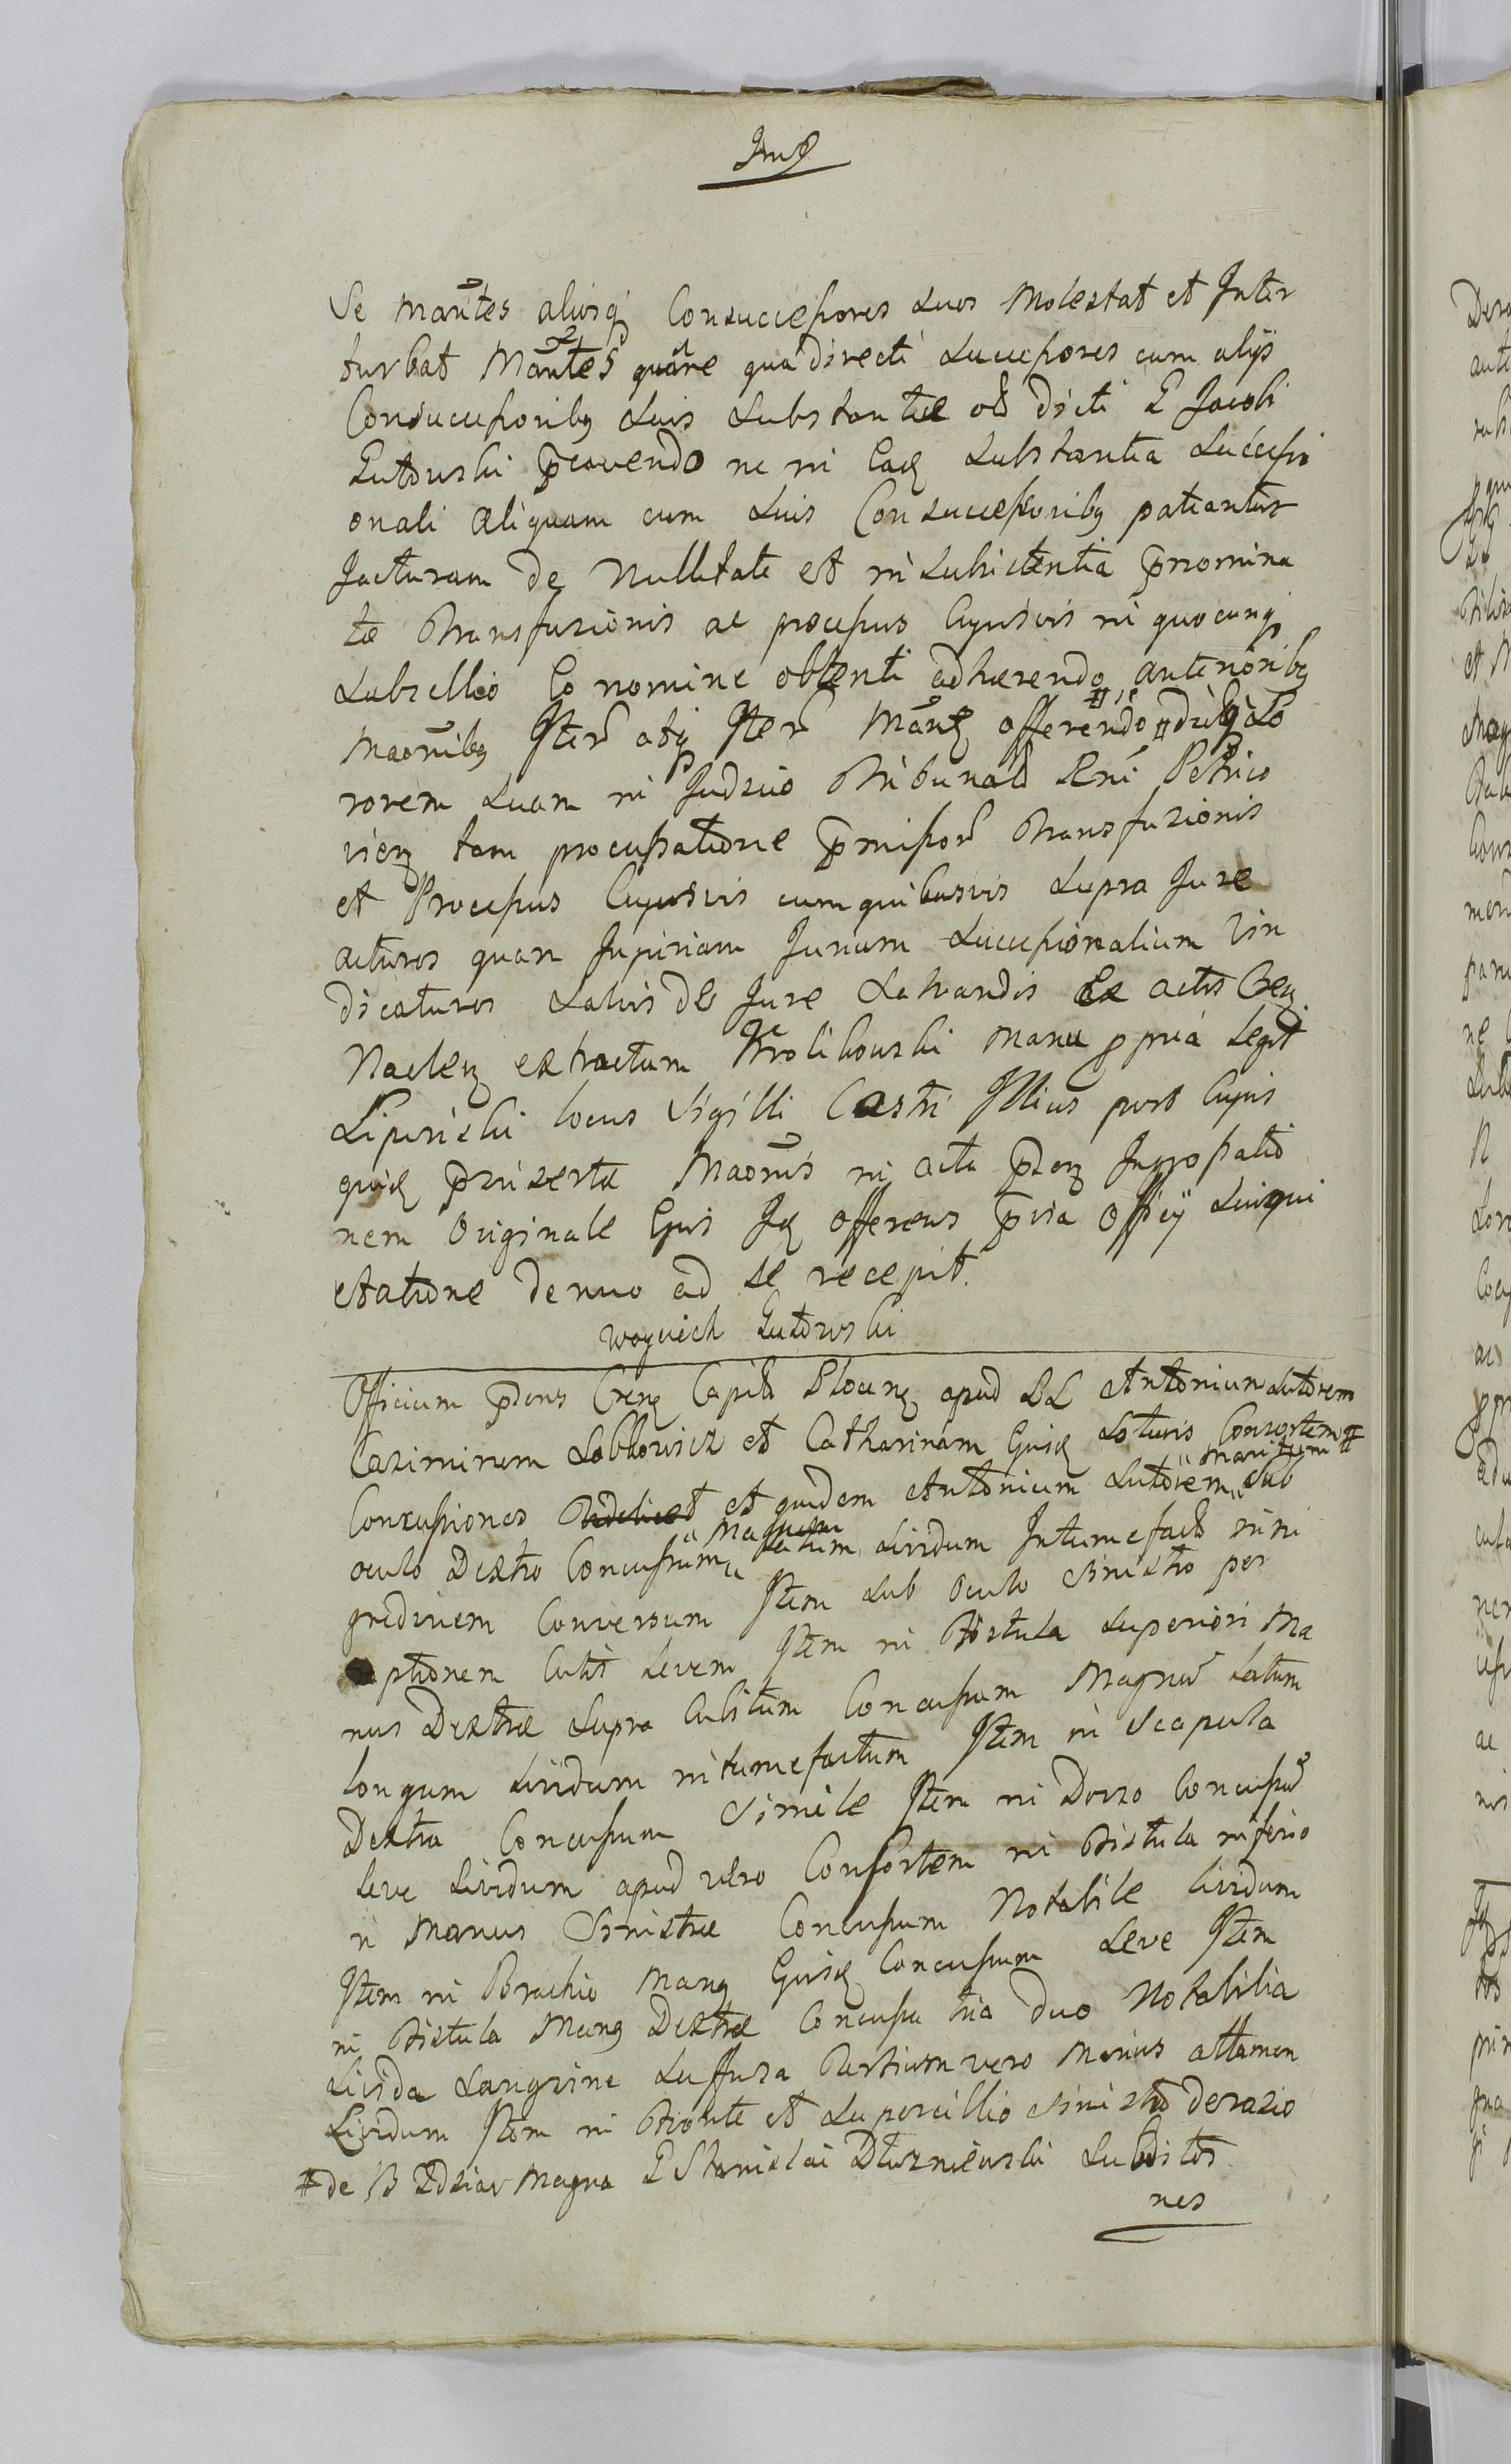 Se Mantes aliosq Consuccessores suos Molestat et Inter
turbat Mantes quare qua directi Successores cum alijs
Consuccessoribq suis Substantiæ olt dicti G Jacobi
Gutowski præcavendo ne in Eaq Substantia Successi
onali aliquam cum suis Consuccessoribq patiantur
Jacturam de Nullitate et insubsistentia prænomina
tæ Transfusionis ac processus Cujusvis in quocunq
Subsellio Eo nomine obtenti adhærendo anterioribq
Maonibq Iter atq Iter Manq offerendo
rorem suam in Judicio Tribunali Petrico
vienq tam processatione præmissor Transfusionis
et Processus Cujusvis cum quibusvis supra Jure
acturos quam Jurium Successionalium Vin
dicaturos Salvis de Jure Salvandis Ex actis Crenq
Naclenq extractum Krolikowski manu ppria Legit
Lipinski locus Sigilli Castri Illius post Cujus
quiq præinsertæ Maonis in acta pdenq Ingrossatio
nem Originale Ejus Iq offerens pvia Offij Quiqui
etatione denuo ad se recepit.
Woyciech Gutowski
Officium pdens Crenq Capit Plocenq apud LL Antonium Sutorem
Casimirum et Catharinam Ejusq Consortem #
Contussiones et quidem Antonium Sutorem " Maritum " sub
oculo Dextro Concussum " Magnum " Latum Lividum Intumefact in ni
gredinem Conversum Item sub oculo sinistro per
ruptionem Cutis Levem Item in Fistula superiori Ma
nus Dextræ supra Cubitum Concussum Magnum Latum
longum lividum intumefactum Item in Scapula
Dextra Concussum Simile Item in Dorso Concussum
leve lividum apud vero Consortem in Fistula inferio
ri Manus Sinistræ Concussum Notabile lividum
Item in Brachio Manq Ejusq Concussum Leve Item
in Fistula Manq Dextræ Concussa tria duo Notabilia
Livida Sanguine Suffusa Tertium vero Minus attamen
Lividum Item in Fronte et Supercillio sinistro derasio
# de B Magna G Stanislai Dłuzniewski Subditos
nes